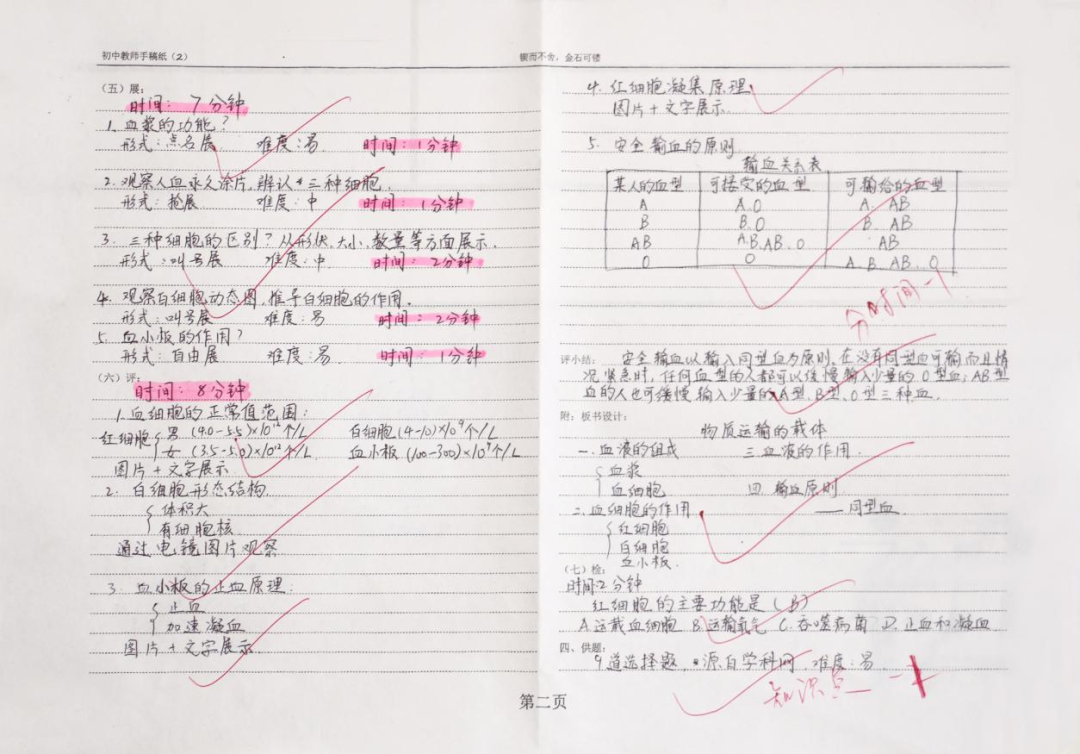 初中教师手稿纸（2）
锲而不舍，金石可镂
（五）展：
时间：7分钟
1. 血浆的功能？
形式：点名展 难度：易 时间：1分钟
2. 观察人血永久涂片，辨认三种细胞.
形式：抢展 难度：中 时间：1分钟
3. 三种细胞的区别？从形状、大小、数量等方面展示.
形式：叫号展 难度：中 时间：2分钟
4. 观察白细胞动态图，推导白细胞的作用.
形式：叫号展 难度：易 时间：2分钟
5. 血小板的作用？
形式：自由展 难度：易 时间：1分钟
（六）评：
时间：8分钟
1. 血细胞的正常值范围：
红细胞 男 (4.0-5.5)×10¹²个/L 白细胞 (4-10)×10⁹个/L
女 (3.5-5.0)×10¹²个/L 血小板 (100-300)×10⁹个/L
图片+文字展示
2. 白细胞形态结构.
体积大
有细胞核
通过电镜图片观察
3. 血小板的止血原理.
止血
加速凝血
图片+文字展示
4. 红细胞凝集原理.
图片+文字展示.
5. 安全输血的原则
输血关系表
某人的血型 可接受的血型 可输给的血型
A A.O A. AB
B B.O B. AB
AB A.B.AB.O AB
O O A.B.AB.O
分时间-1
评小结： 安全输血以输入同型血为原则.在没有同型血可输而且情
况紧急时，任何血型的人都可以缓慢输入少量的O型血；AB型
血的人也可缓慢输入少量的A型、B型、O型三种血.
附：板书设计：
物质运输的载体
一.血液的组成 三.血液的作用.
血浆
血细胞 四.输血原则
二.血细胞的作用 ——同型血
红细胞
白细胞
血小板.
（七）检：
时间：2分钟
红细胞的主要功能是（B）
A.运载血细胞 B.运输氧气 C.吞噬病菌 D.止血和凝血
四、供题：
9道选择题，源自学科网.难度：易.
知识点 -1
第二页